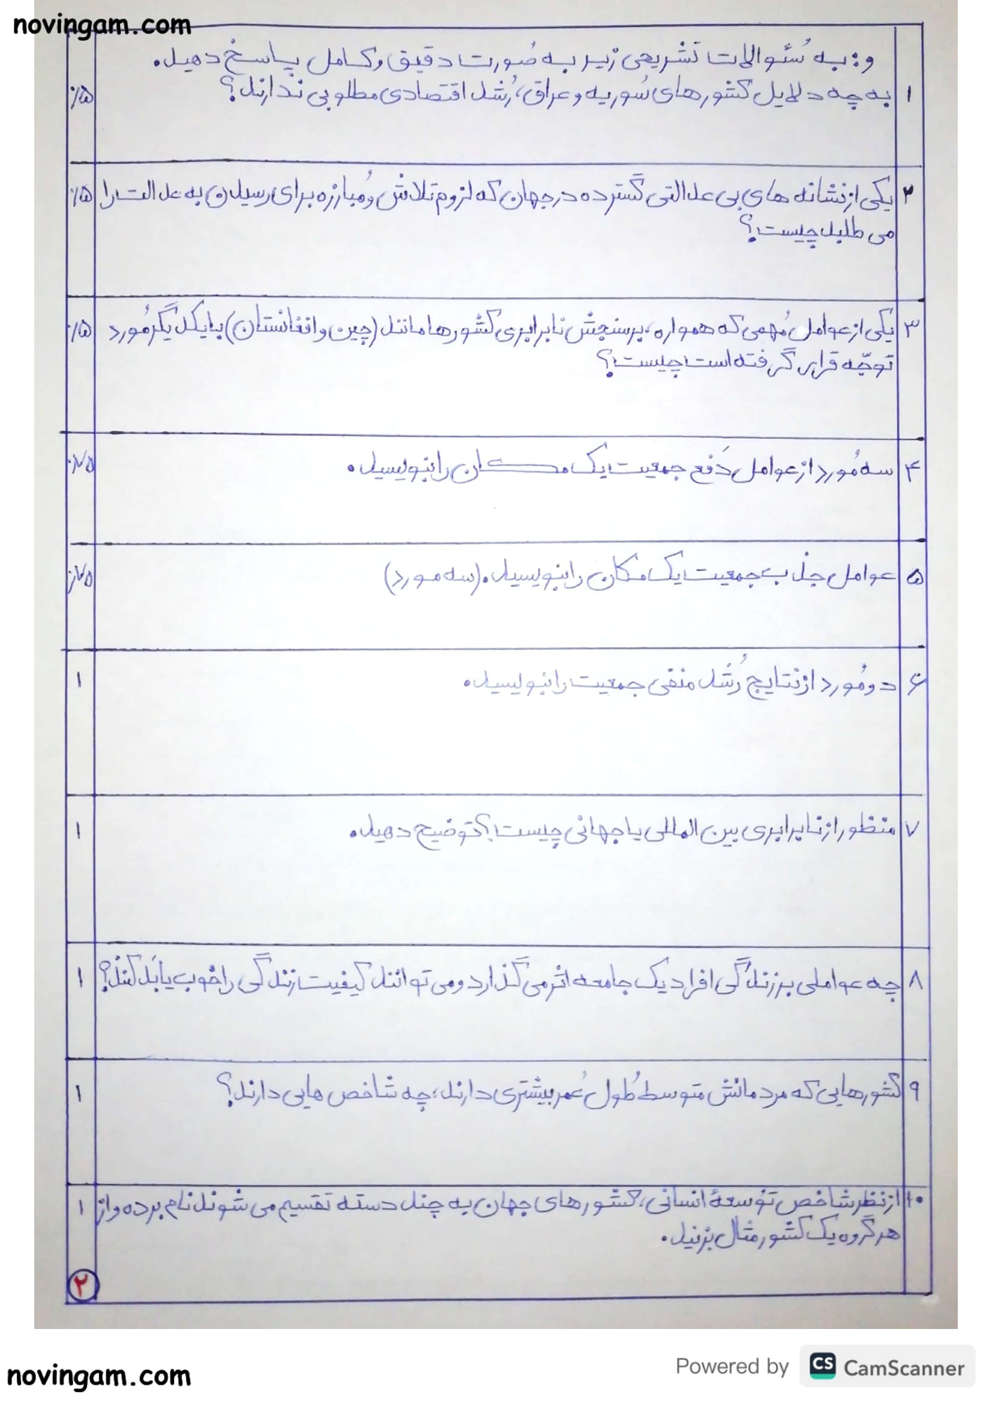 novingam.com
و: به سُئوالات تشریحی زیر به صُورت دقیق و کامل پاسخ دهید.
۱ به چه دلایل کشورهای سُوریه و عراق، رُشد اقتصادی مطلوبی ندارند؟ ۰/۵
۲ یکی از نشانه های بی عدالتی گسترده در جهان که لزوم تلاش و مُبارزه برای رسیدن به عدالت را ۰/۵
می طلبد چیست؟
۳ یکی از عوامل مُهمی که همواره، بر سنجش نابرابری کشورها مانند (چین و افغانستان) با یکدیگر مُورد ۰/۵
توجّه قرار گرفته است چیست؟
۴ سه مُورد از عوامل دَفع جمعیت یک مکان را بنویسید. ۰/۷۵
۵ عوامل جذب جمعیت یک مکان را بنویسید. (سه مورد) ۰/۷۵
۶ دو مُورد از نتایج رُشد منفی جمعیت را بنویسید. ۱
۷ منظور از نابرابری بین المللی یا جهانی چیست؟ توضیح دهید. ۱
۸ چه عواملی بر زندگی افراد یک جامعه اثر می گذارد و می توانند کیفیت زندگی را خوب یا بَد کنند؟ ۱
۹ کشورهایی که مردمانش متوسط طُول عُمر بیشتری دارند، چه شاخص هایی دارند؟ ۱
۱۰ از نظر شاخص توُسعهٔ انسانی، کشورهای جهان به چند دسته تقسیم می شوند نام برده و از ۱
هر گروه یک کشور مثال بزنید.
۲
Powered by CS CamScanner
novingam.com